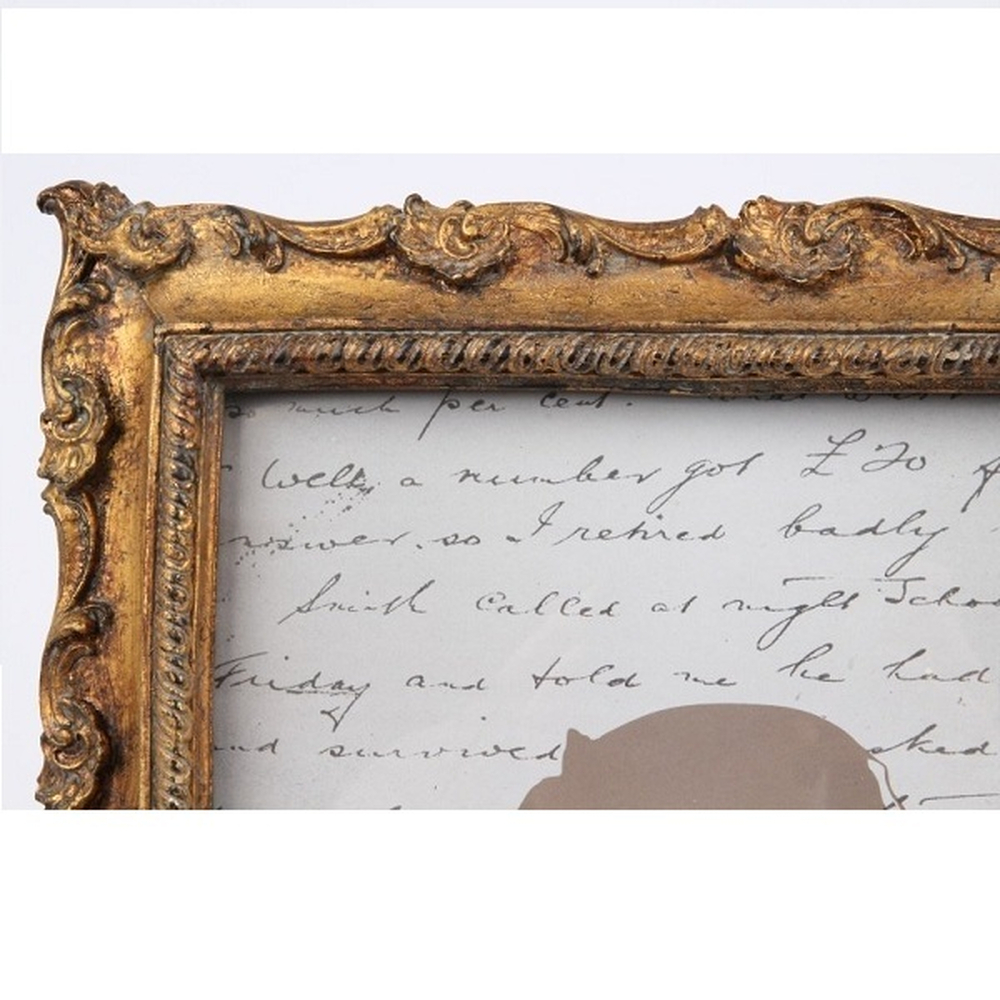 so much per cent.
Well, a number got £20
answer, so I retired badly
Smith called at night Schoo
Friday and told me he had
nd survived sked